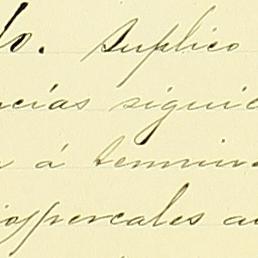 lo. Suplico
ncias siguie
á termina
percales a